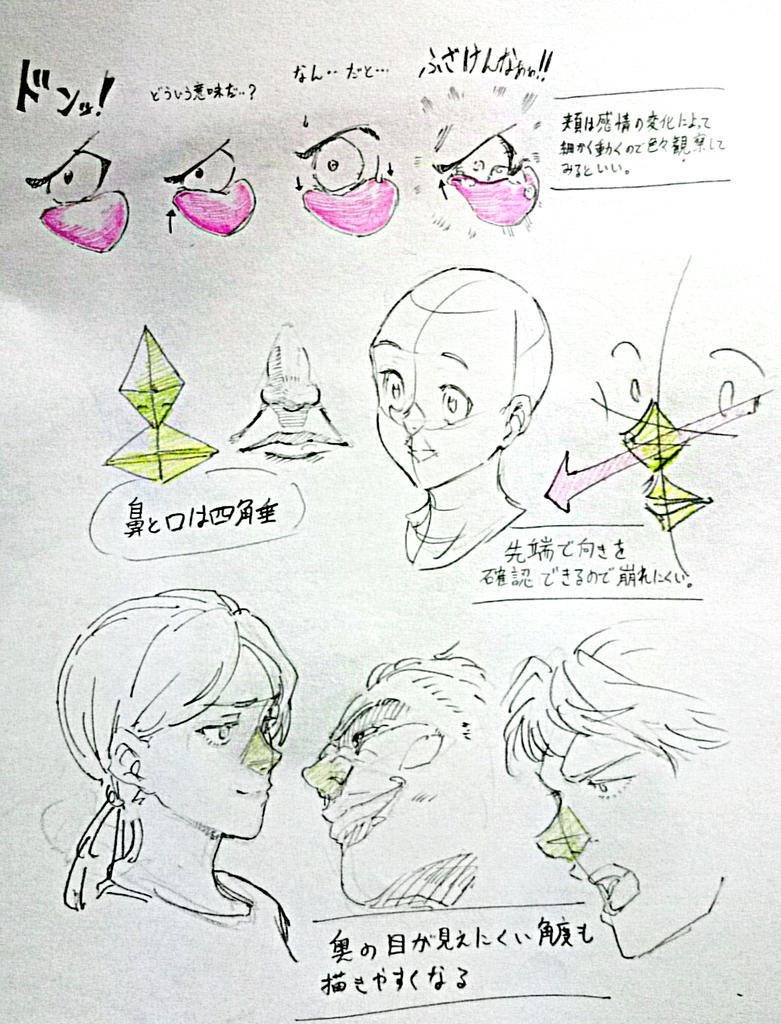 ドンッ!
どういう意味だ‥?
なん‥だと…
ふざけんなぁぁ!!
頬は感情の変化によって
細かく動くので色々観察して
みるといい。
鼻と口は四角垂
先端で向きを
確認できるので崩れにくい。
奥の目が見えにくい角度も
描きやすくなる